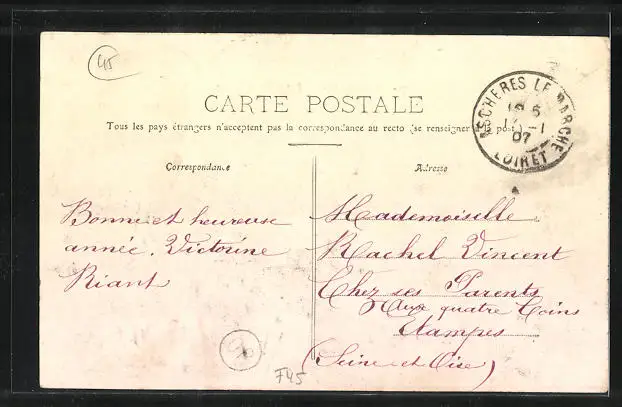 45
CARTE POSTALE
Tous les pays étrangers n'acceptent pas la correspondance au recto (se renseigner à la poste)
ASCHERES LE MARCHE
5
-1
07
LOIRET
Correspondance
Adresse
Bonne et heureuse
année. Victorine
Riant
Mademoiselle
Rachel Vincent
Chez ses Parents
Aux quatre Coins
Etampes
(Seine et Oise)
F45